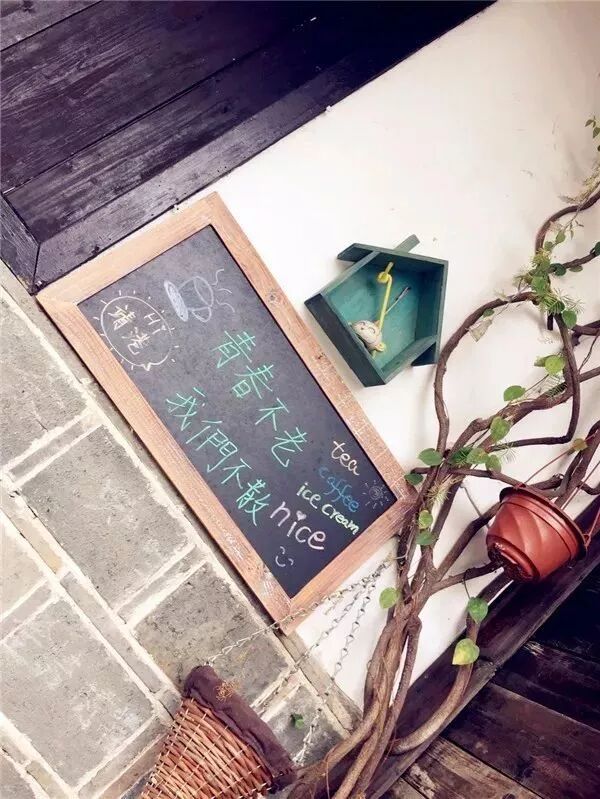 HI
靖港
青春不老
我們不散
tea
caffee
ice cream
nice